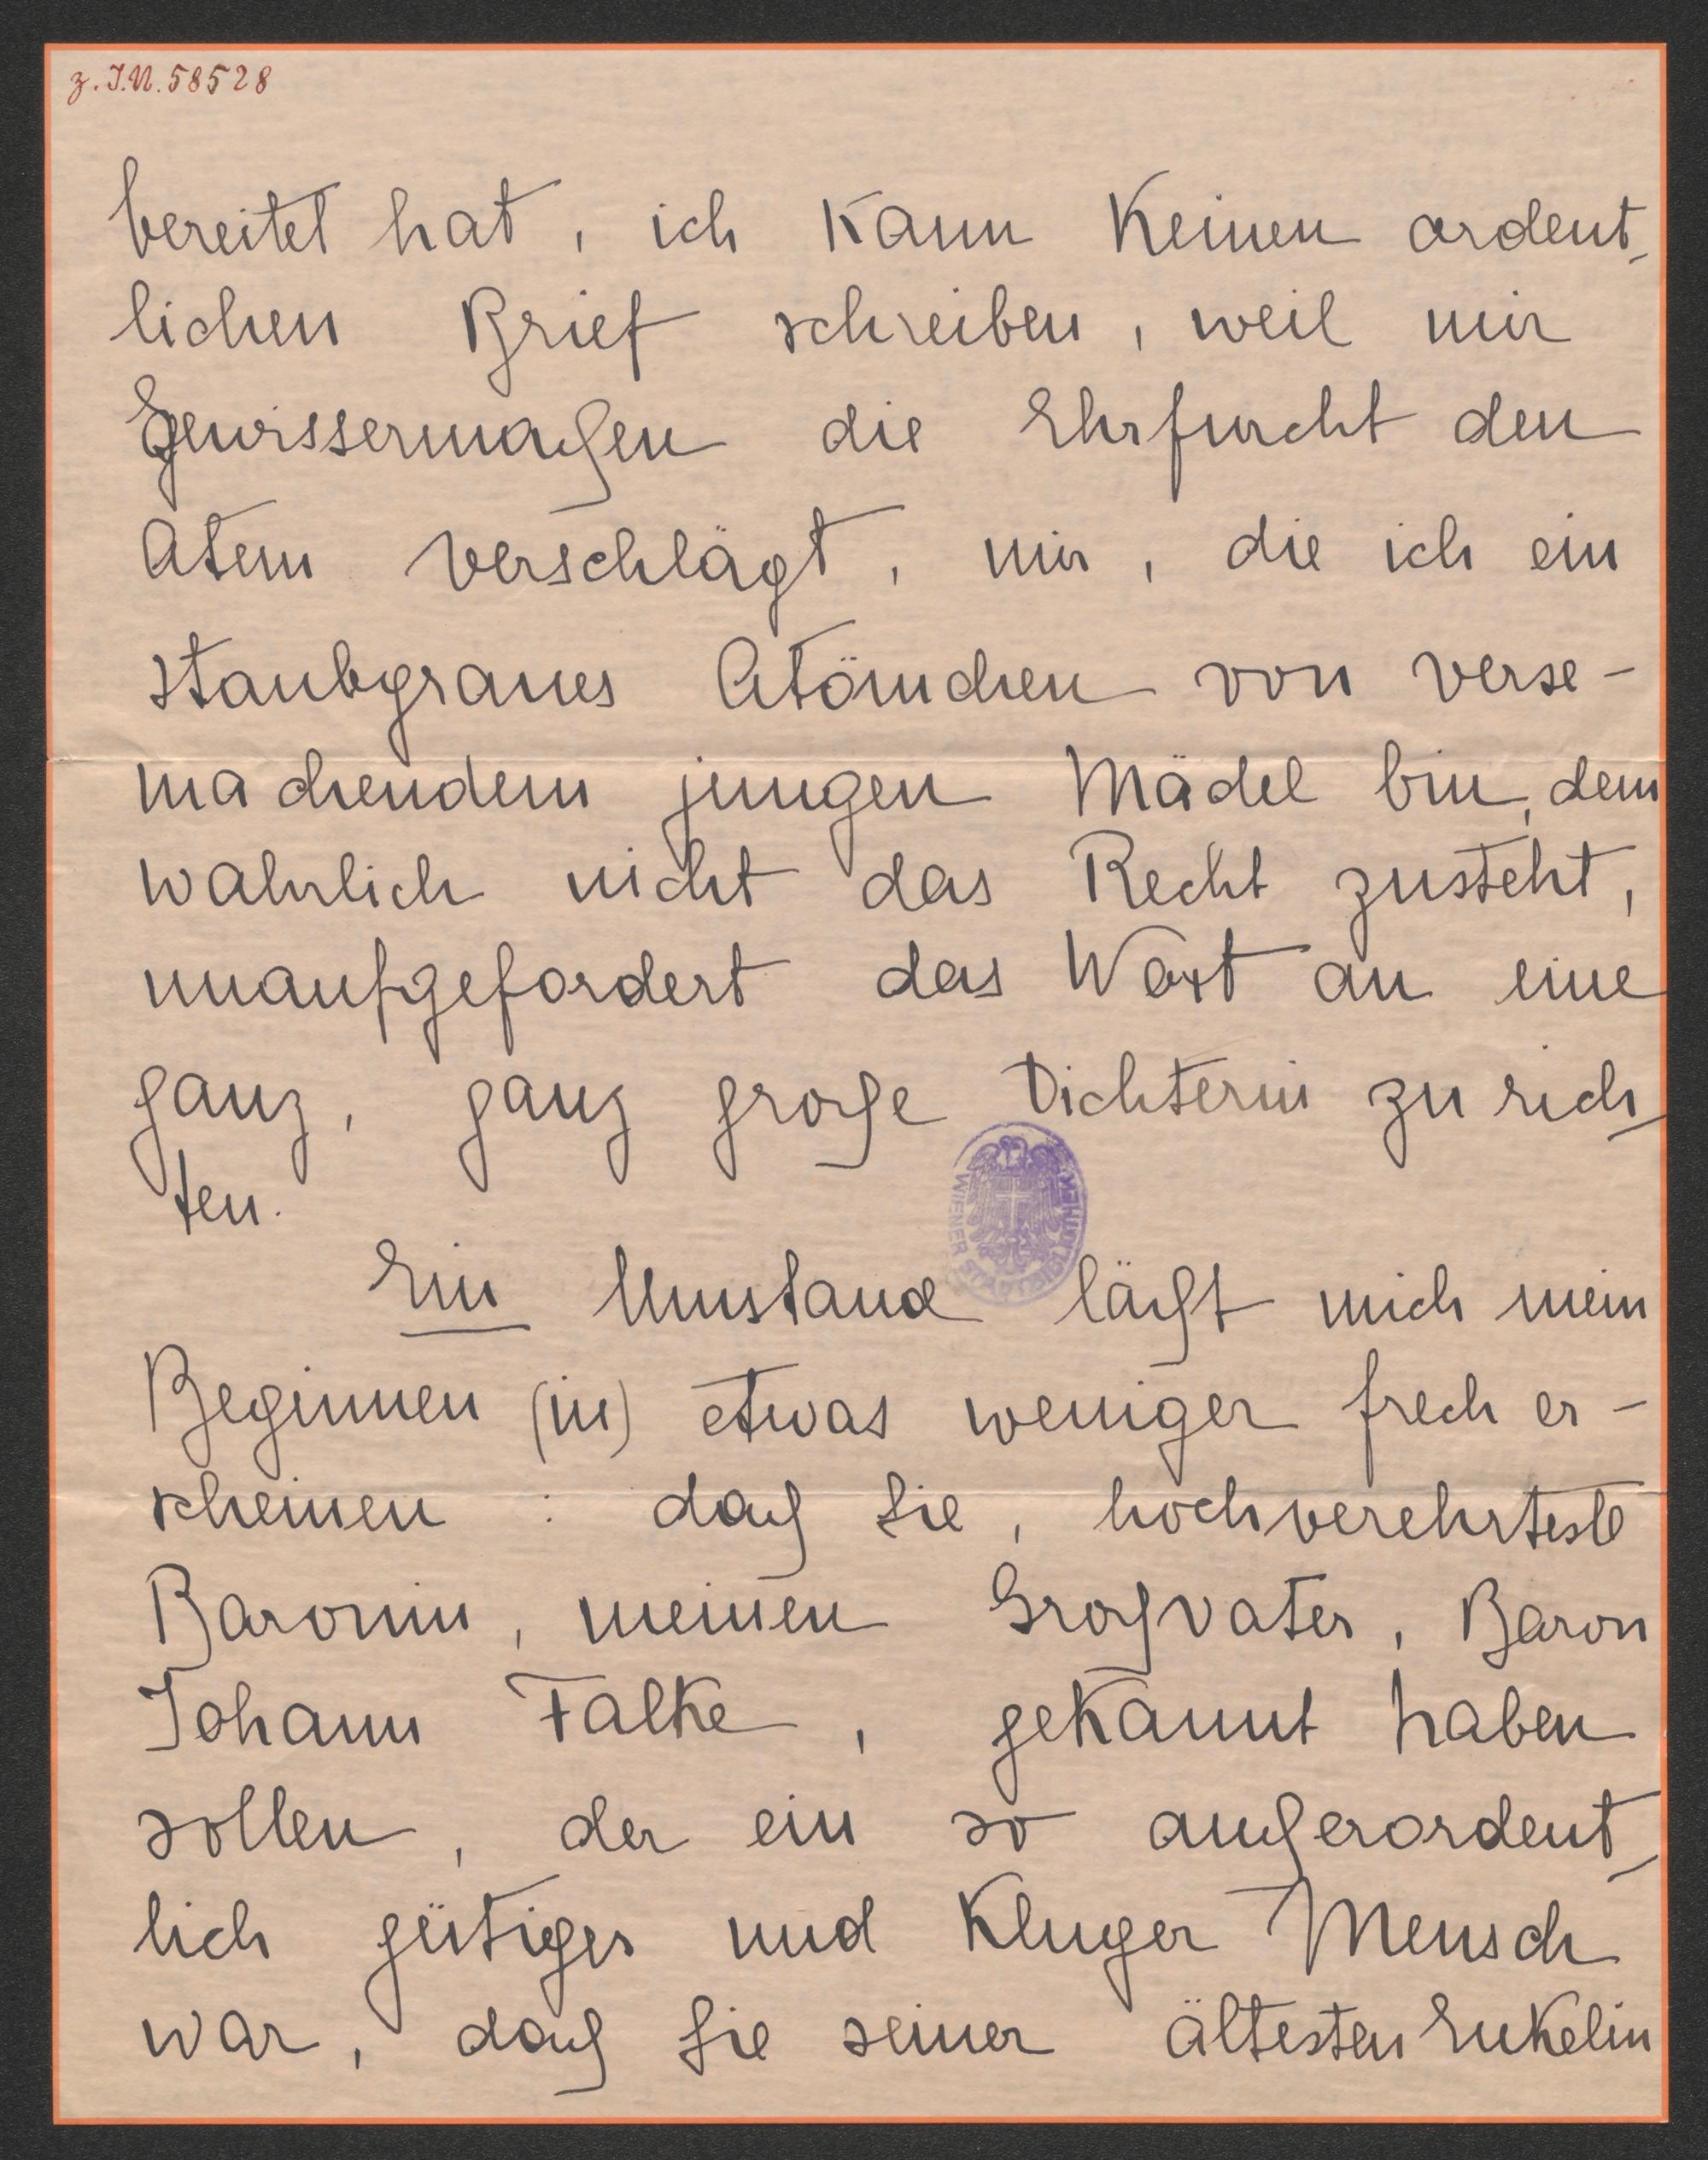 z. I.N. 58528
bereitet hat, ich kann keinen ordent-
lichen Brief schreiben, weil mir
gewissermaßen die Ehrfurcht den
Atem verschlägt, mir, die ich ein
staubgraues Atömchen von verse-
machendem jungen Mädel bin, dem
wahrlich nicht das Recht zusteht,
unaufgefordert das Wort an eine
ganz, ganz große Dichterin zu rich-
ten.
Ein Umstand läßt mich mein
Beginnen (in) etwas weniger frech er-
scheinen : daß Sie, hochverehrteste
Baronin, meinen Großvater, Baron
Johann Falke, gekannt haben
sollen, der ein so außerordent-
lich gütiger und kluger Mensch
war, daß Sie seiner ältesten Enkelin